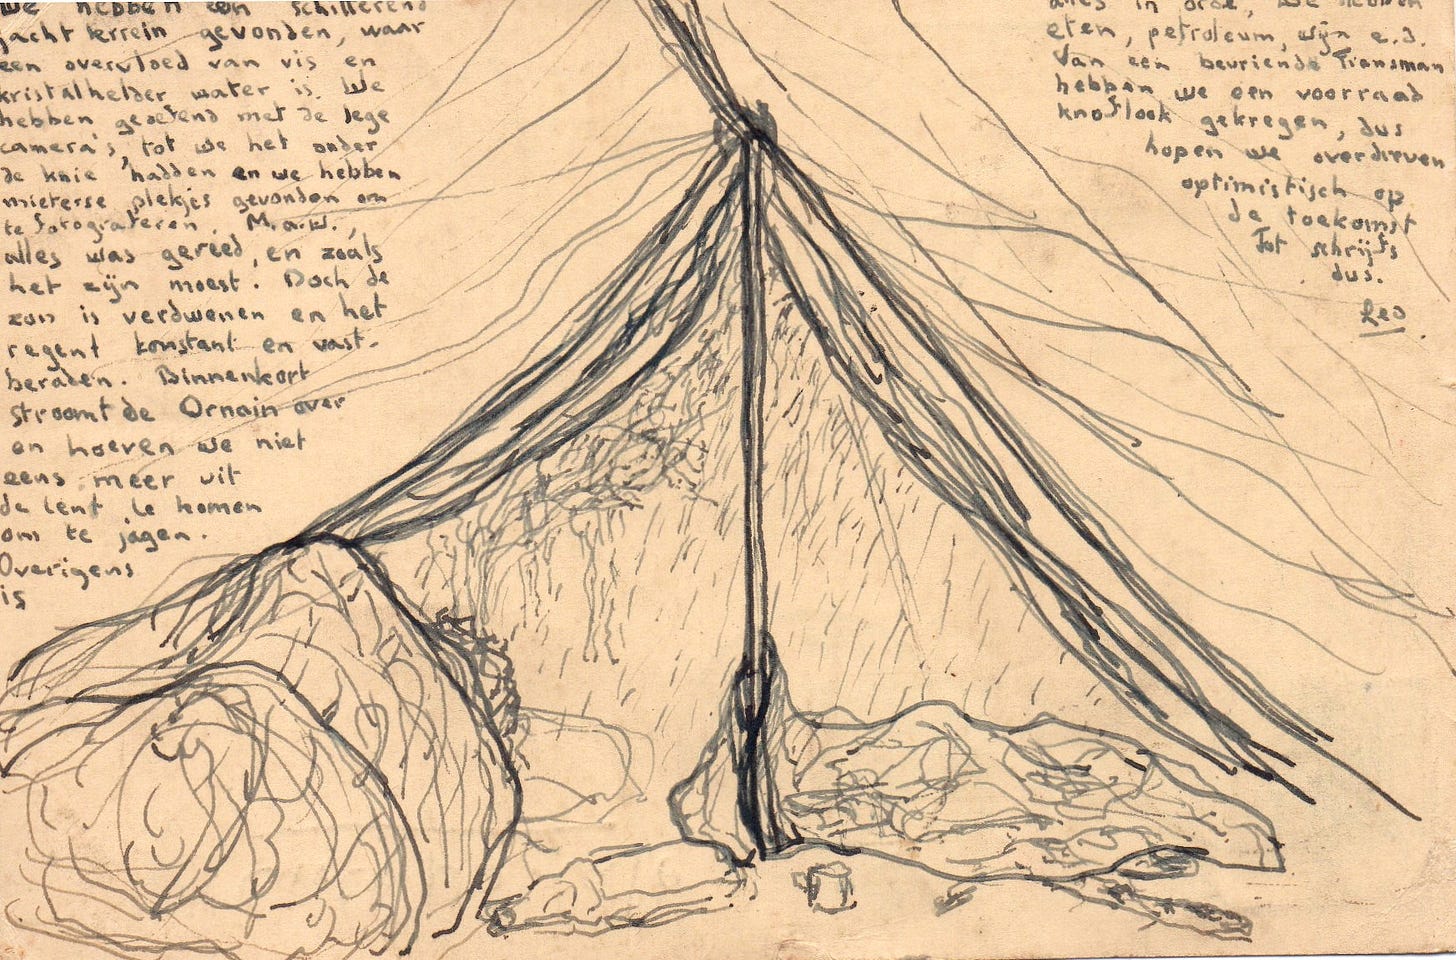 We hebben een schitterend
jachtterrein gevonden, waar
een overvloed van vis en
kristalhelder water is. We
hebben geoefend met de lege
camera's, tot we het onder
de knie hadden en we hebben
mieterse plekjes gevonden om
te fotograferen. M.a.w.,
alles was gereed, en zoals
het zijn moest. Doch de
zon is verdwenen en het
regent konstant en vast-
beraden. Binnenkort
stroomt de Ornain over
en hoeven we niet
eens meer uit
de tent te komen
om te jagen.
Overigens
is
alles in orde, we hebben
eten, petroleum, wijn e.d.
Van een bevriende Fransman
hebben we een voorraad
knoflook gekregen, dus
hopen we overdreven
optimistisch op
de toekomst
Tot schrijfs
dus.
Leo